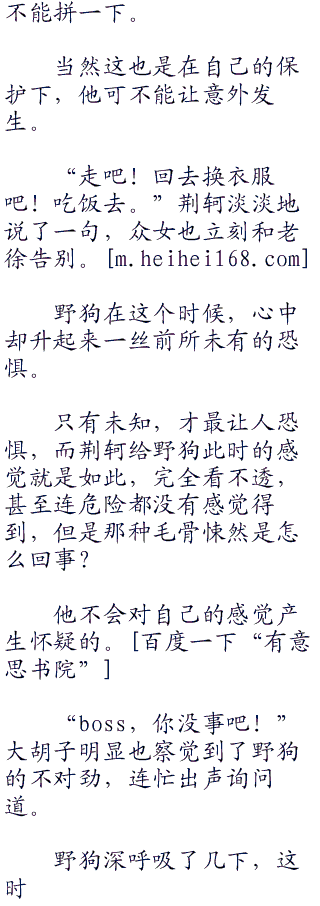 不能拼一下。
当然这也是在自己的保
护下，他可不能让意外发
生。
“走吧！回去换衣服
吧！吃饭去。”荆轲淡淡地
说了一句，众女也立刻和老
徐告别。[m.heihei168.com]
野狗在这个时候，心中
却升起来一丝前所未有的恐
惧。
只有未知，才最让人恐
惧，而荆轲给野狗此时的感
觉就是如此，完全看不透，
甚至连危险都没有感觉得
到，但是那种毛骨悚然是怎
么回事？
他不会对自己的感觉产
生怀疑的。[百度一下“有意
思书院”]
“boss，你没事吧！”
大胡子明显也察觉到了野狗
的不对劲，连忙出声询问
道。
野狗深呼吸了几下，这
时